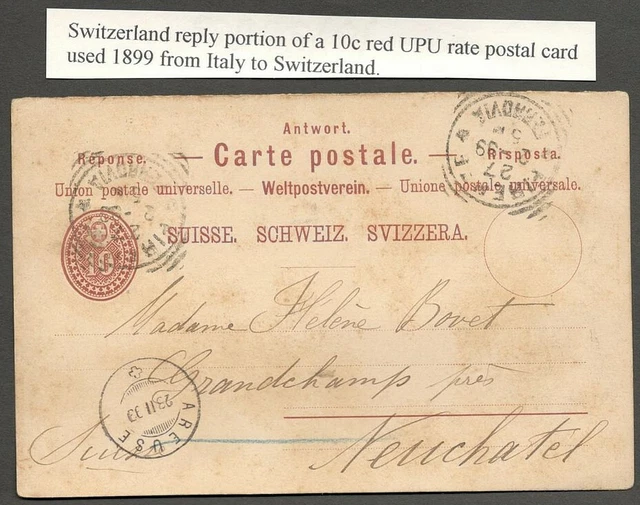 Switzerland reply portion of a 10c red UPU rate postal card
used 1899 from Italy to Switzerland.
Antwort.
Réponse. — Carte postale. — Risposta.
Union postale universelle. — Weltpostverein. — Unione postale universale.
SUISSE. SCHWEIZ. SVIZZERA.
10
Madame Hélène Bovet
Grandchamp près
Neuchatel
Suisse
AREUSE